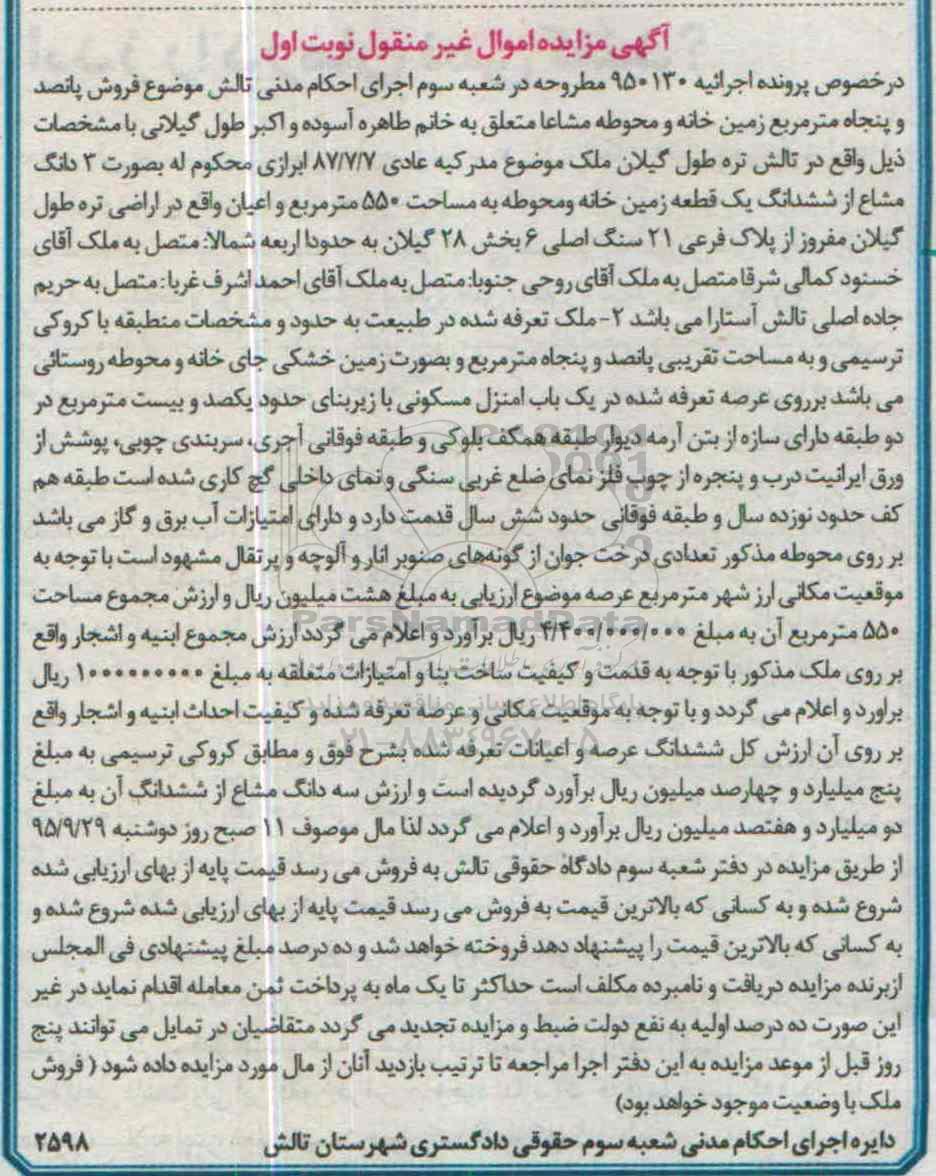 آگهی مزایده اموال غیر منقول نوبت اول
درخصوص پرونده اجرائیه ۹۵۰۱۳۰ مطروحه در شعبه سوم اجرای احکام مدنی تالش موضوع فروش پانصد
و پنجاه مترمربع زمین خانه و محوطه مشاعا متعلق به خانم طاهره آسوده و اکبر طول گیلانی با مشخصات
ذیل واقع در تالش تره طول گیلان ملک موضوع مدرکیه عادی ۸۷/۷/۷ ابرازی محکوم له بصورت ۳ دانگ
مشاع از ششدانگ یک قطعه زمین خانه ومحوطه به مساحت ۵۵۰ مترمربع و اعیان واقع در اراضی تره طول
گیلان مفروز از پلاک فرعی ۲۱ سنگ اصلی ۶ بخش ۲۸ گیلان به حدودا اربعه شمالا: متصل به ملک آقای
خسنود کمالی شرقا متصل به ملک آقای روحی جنوبا: متصل به ملک آقای احمد اشرف غربا: متصل به حریم
جاده اصلی تالش آستارا می باشد ۲- ملک تعرفه شده در طبیعت به حدود و مشخصات منطبقه با کروکی
ترسیمی و به مساحت تقریبی پانصد و پنجاه مترمربع و بصورت زمین خشکی جای خانه و محوطه روستائی
می باشد برروی عرصه تعرفه شده در یک باب امنزل مسکونی با زیربنای حدود یکصد و بیست مترمربع در
دو طبقه دارای سازه از بتن آرمه دیوار طبقه همکف بلوکی و طبقه فوقانی آجری، سربندی چوبی، پوشش از
ورق ایرانیت درب و پنجره از چوب فلز نمای ضلع غربی سنگی و نمای داخلی گچ کاری شده است طبقه هم
کف حدود نوزده سال و طبقه فوقانی حدود شش سال قدمت دارد و دارای امتیازات آب برق و گاز می باشد
بر روی محوطه مذکور تعدادی درخت جوان از گونه‌های صنوبر انار و آلوچه و پرتقال مشهود است با توجه به
موقعیت مکانی ارز شهر مترمربع عرصه موضوع ارزیابی به مبلغ هشت میلیون ریال و ارزش مجموع مساحت
۵۵۰ مترمربع آن به مبلغ ۴/۴۰۰/۰۰۰/۰۰۰ ریال برآورد و اعلام می گردد ارزش مجموع ابنیه و اشجار واقع
بر روی ملک مذکور با توجه به قدمت و کیفیت ساخت بنا و امتیازات متعلقه به مبلغ ۱۰۰۰۰۰۰۰۰۰ ریال
براورد و اعلام می گردد و با توجه به موقعیت مکانی و عرصه تعرفه شده و کیفیت احداث ابنیه و اشجار واقع
بر روی آن ارزش کل ششدانگ عرصه و اعیانات تعرفه شده بشرح فوق و مطابق کروکی ترسیمی به مبلغ
پنج میلیارد و چهارصد میلیون ریال برآورد گردیده است و ارزش سه دانگ مشاع از ششدانگ آن به مبلغ
دو میلیارد و هفتصد میلیون ریال برآورد و اعلام می گردد لذا مال موصوف ۱۱ صبح روز دوشنبه ۹۵/۹/۲۹
از طریق مزایده در دفتر شعبه سوم دادگاه حقوقی تالش به فروش می رسد قیمت پایه از بهای ارزیابی شده
شروع شده و به کسانی که بالاترین قیمت به فروش می رسد قیمت پایه از بهای ارزیابی شده شروع شده و
به کسانی که بالاترین قیمت را پیشنهاد دهد فروخته خواهد شد و ده درصد مبلغ پیشنهادی فی المجلس
ازبرنده مزایده دریافت و نامبرده مکلف است حداکثر تا یک ماه به پرداخت ثمن معامله اقدام نماید در غیر
این صورت ده درصد اولیه به نفع دولت ضبط و مزایده تجدید می گردد متقاضیان در تمایل می توانند پنج
روز قبل از موعد مزایده به این دفتر اجرا مراجعه تا ترتیب بازدید آنان از مال مورد مزایده داده شود ( فروش
ملک با وضعیت موجود خواهد بود)
دایره اجرای احکام مدنی شعبه سوم حقوقی دادگستری شهرستان تالش ۲۵۹۸
ParsNamadData
۰۲۱-۸۸۳۴۹۶۷۰-۵